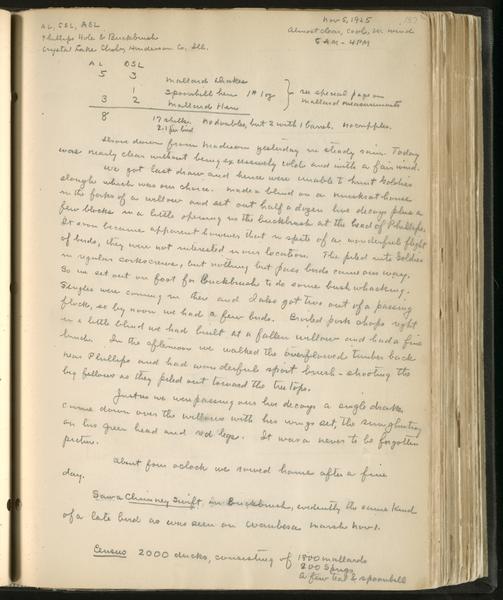 AL, CSL, AEL
Phillips Hole & Buckbrush
Crystal Lake Club, Henderson Co, Ill.
Nov 5, 1925
157
Almost clear, cool, W wind
5 AM - 4 PM
AL CSL
5 3 Mallard Drakes
1 Spoonbill hen 1# 1 oz
3 2 Mallard Hens
see special page on
mallard measurements
8 17 shells. No doubles, but 2 with 1 barrel. No cripples.
2.1 per bird
Drove down from Madison yesterday in steady rain. Today
was nearly clear without being excessively cold and with a fair wind.
We got last draw and hence were unable to hunt Goldies
slough which was our choice. Made a blind on a muskrat house
in the forks of a willow and set out half a dozen live decoys plus a
few blocks in a little opening in the buckbrush at the head of Phillips.
It soon became apparent however that in spite of a wonderful flight
of birds, they were not interested in our location. They piled into Goldies
in regular corkscrews, but nothing but pass birds came our way.
So we set out on foot for Buckbrush to do some bushwhacking.
Singles were coming in there and I also got two out of a passing
flock, so by noon we had a few birds. Broiled pork chops right
in a little blind we had built at a fallen willow and had a fine
lunch. In the afternoon we walked the overflowed timber back
near Phillips and had wonderful sport brush-shooting the
big fellows as they piled out toward the tree tops.
Just as we were passing our live decoys a single drake
came down over the willows with his wings set, the sun glinting
on his green head and red legs. It was a never to be forgotten
picture.
About four oclock we rowed home after a fine
day.
Saw a Chimney Swift in Buckbrush, evidently the same kind
of a late bird as was seen on Waubesa marsh Nov 1.
Census 2000 ducks, consisting of 1800 mallards
200 Sprigs
a few teal & spoonbill